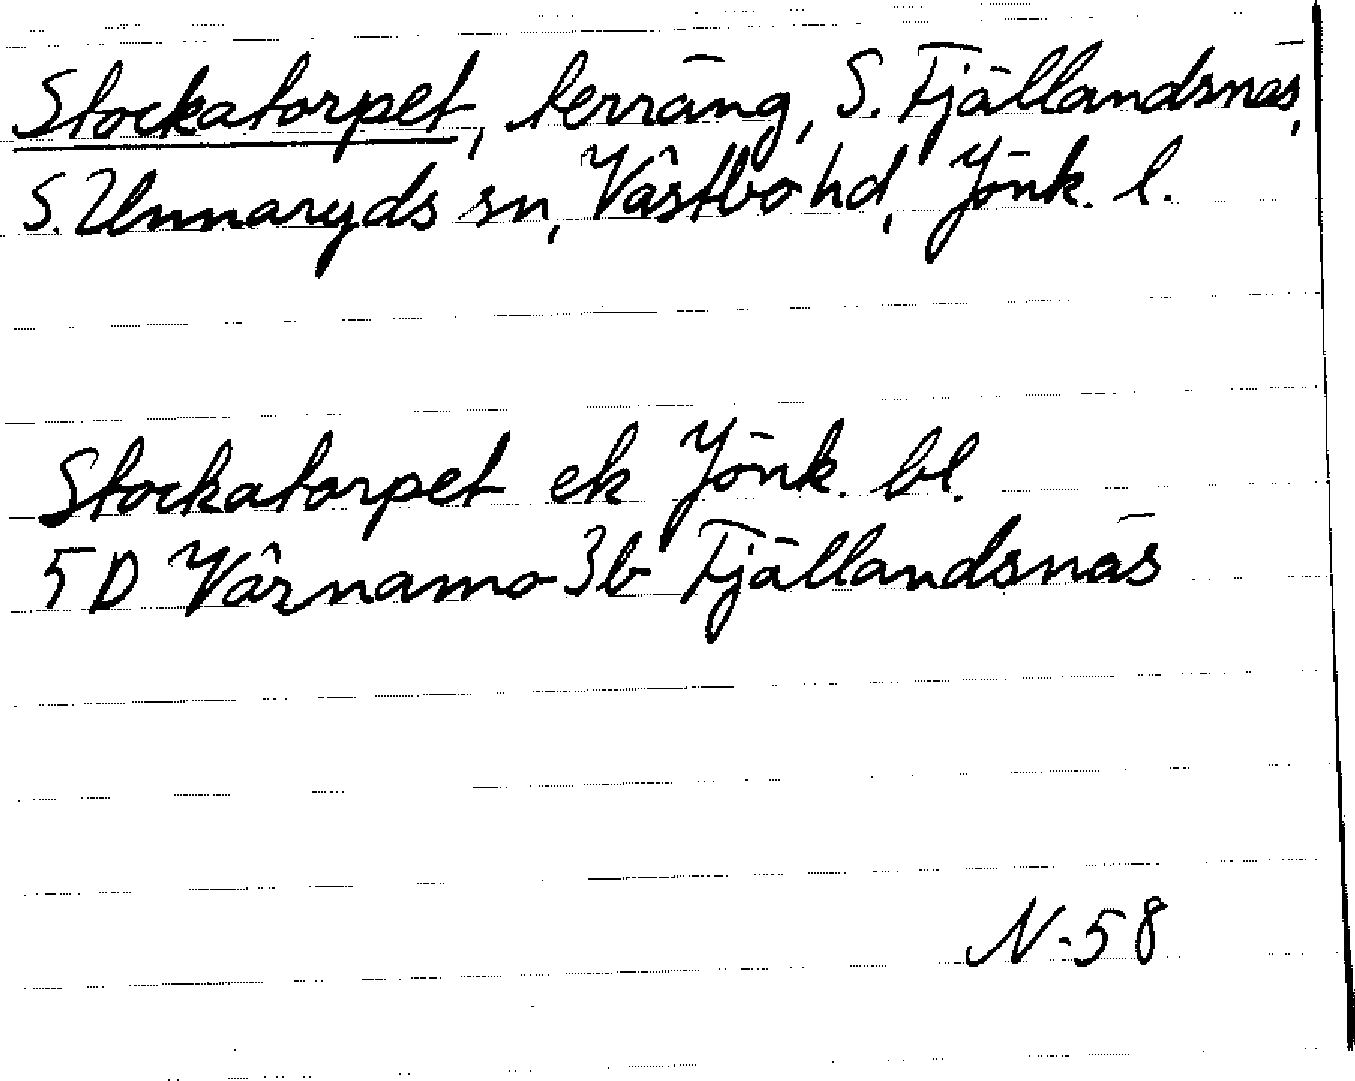 Stockatorpet, terräng, S. Fjällandsnäs,
S. Unnaryds sn, Västbo hd, Jönk. l.
Stockatorpet ek Jönk. bl.
5D Värnamo 3b Fjällandsnäs
N-58